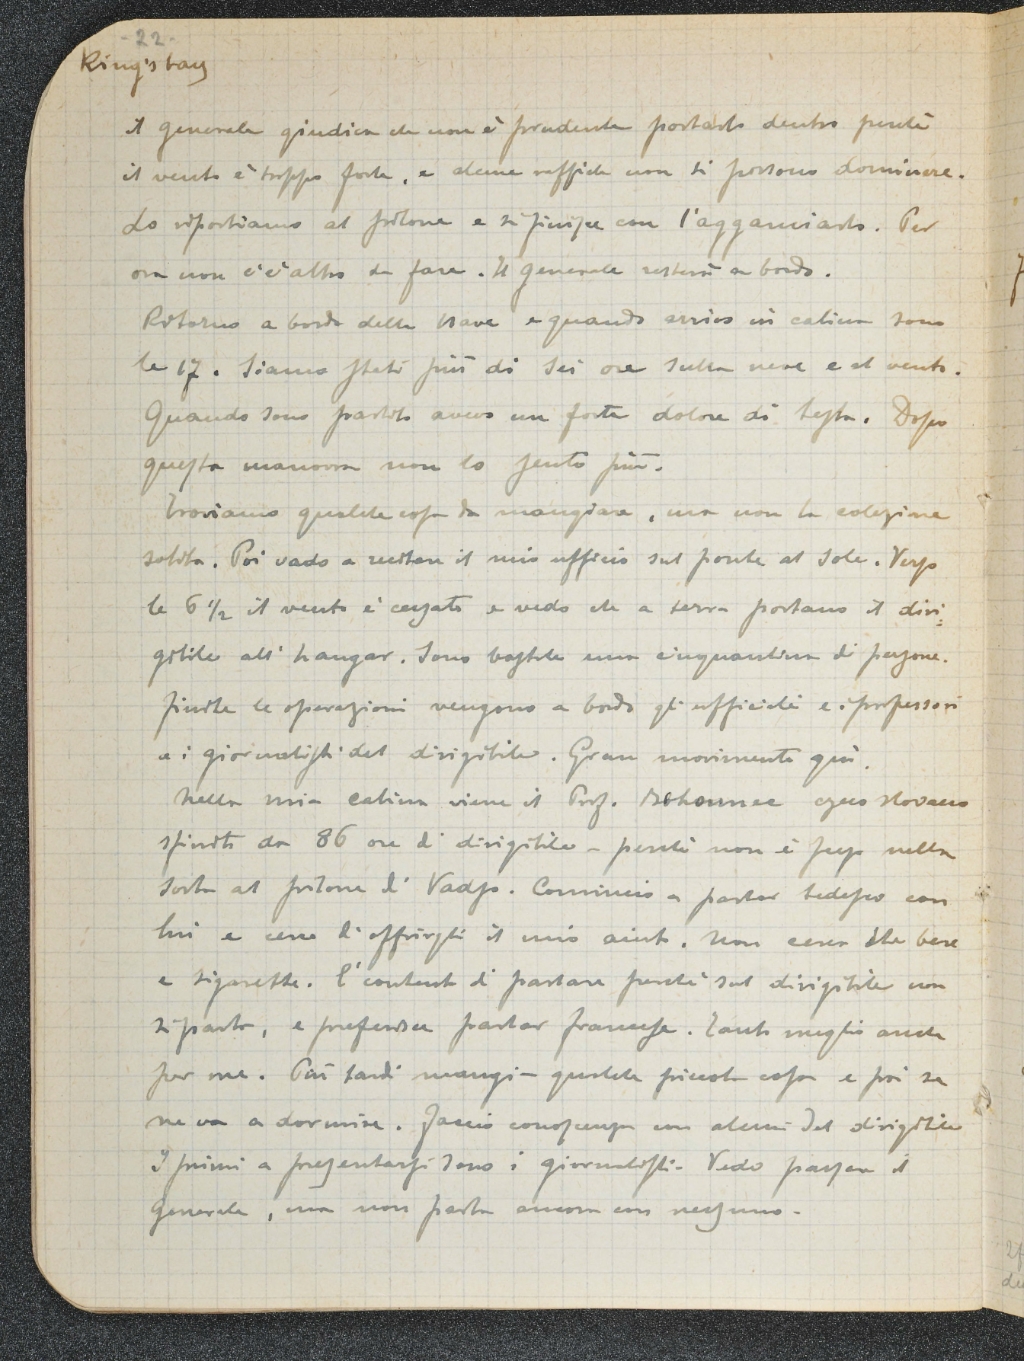 -22-
King's bay
il generale giudica che non è prudente portarlo dentro perchè
il vento è troppo forte, e alcune raffiche non si possono dominare.
Lo riportiamo al pilone e si finisce con l'agganciarlo. Per
ora non c'è altro da fare. Il generale resterà a bordo.
Ritorno a bordo della nave e quando arrivo in cabina sono
le 17. Siamo stati più di sei ore sulla neve e al vento.
Quando sono partito avevo un forte dolore di testa. Dopo
questa manovra non lo sento più.
Troviamo qualche cosa da mangiare, ma non la colazione
solita. Poi vado a recitare il mio ufficio sul ponte al sole. Verso
le 6 1/2 il vento è cessato e vedo che a terra portano il diri=
gibile all'hangar. Sono bastate una cinquantina di persone.
Finite le operazioni vengono a bordo gli ufficiali e i professori
e i giornalisti del dirigibile. Gran movimento qui.
Nella mia cabina viene il Prof. Behounec ceco slovacco
sfinito da 86 ore di dirigibile - perchè non è sceso nella
sosta al pilone di Vadso. Comincio a parlar tedesco con
lui e cerco d'offrirgli il mio aiuto. Non cerca che bere
e sigarette. È contento di parlare perchè sul dirigibile non
si parla, e preferisce parlar francese. Tanto meglio anche
per me. Più tardi mangia qualche piccola cosa e poi se
ne va a dormire. Faccio conoscenza con alcuni del dirigibile
I primi a presentarsi sono i giornalisti. Vedo passare il
generale, ma non parla ancora con nessuno.